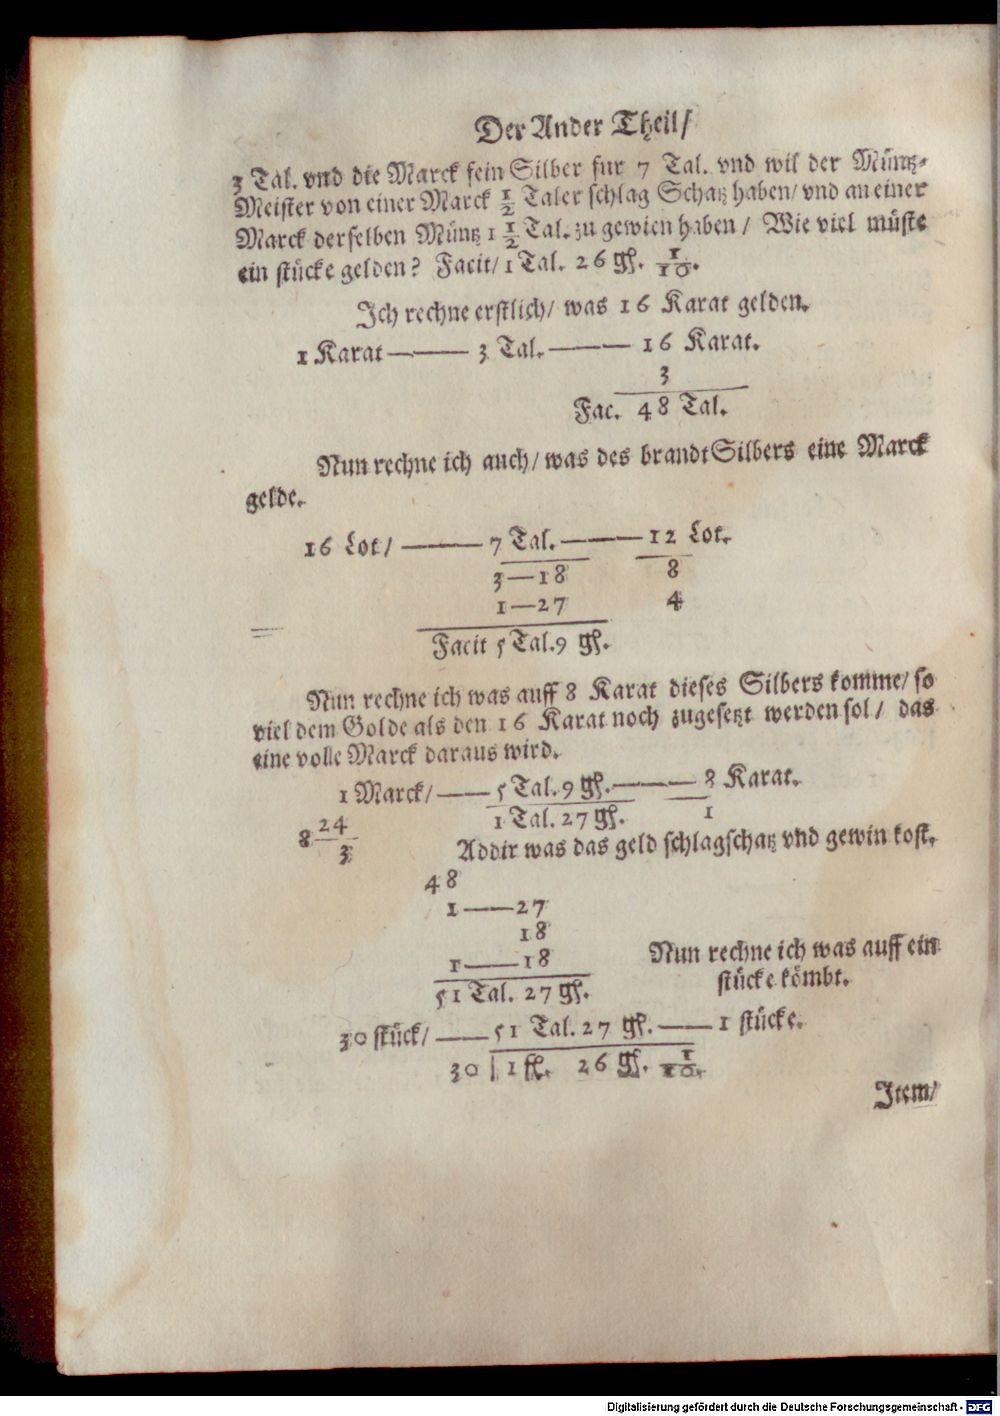 Der Ander Theil/
3 Tal. vnd die Marck fein Silber fur 7 Tal. vnd wil der Müntz-
Meister von einer Marck 1/2 Taler schlag Schatz haben/ vnd an einer
Marck derselben Müntz 1 1/2 Tal. zu gewien haben / Wie viel müste
ein stücke gelden? Facit/ 1 Tal. 26 gſ. 1/10.
Ich rechne erstlich/ was 16 Karat gelden.
1 Karat——— 3 Tal.——— 16 Karat.
3
Fac. 48 Tal.
Nun rechne ich auch/ was des brandt Silbers eine Marck
gelde.
16 Lot/ ——— 7 Tal.——— 12 Lot.
3—18 8
1—27 4
Facit 5 Tal. 9 gſ.
Nun rechne ich was auff 8 Karat dieses Silbers komme/ so
viel dem Golde als den 16 Karat noch zugesetzt werden sol / das
eine volle Marck daraus wird.
1 Marck/ —— 5 Tal. 9 gſ.——— 8 Karat.
1 Tal. 27 gſ. 1
8 24
3 Addir was das geld schlagschatz vnd gewin kost.
48
1——27
18
1——18 Nun rechne ich was auff ein
51 Tal. 27 gſ. stücke kömbt.
30 stück/ —— 51 Tal. 27 gſ. —— 1 stücke.
30 | 1 fl. 26 gſ. 1/10.
Item/
Digitalisierung gefördert durch die Deutsche Forschungsgemeinschaft - DFG